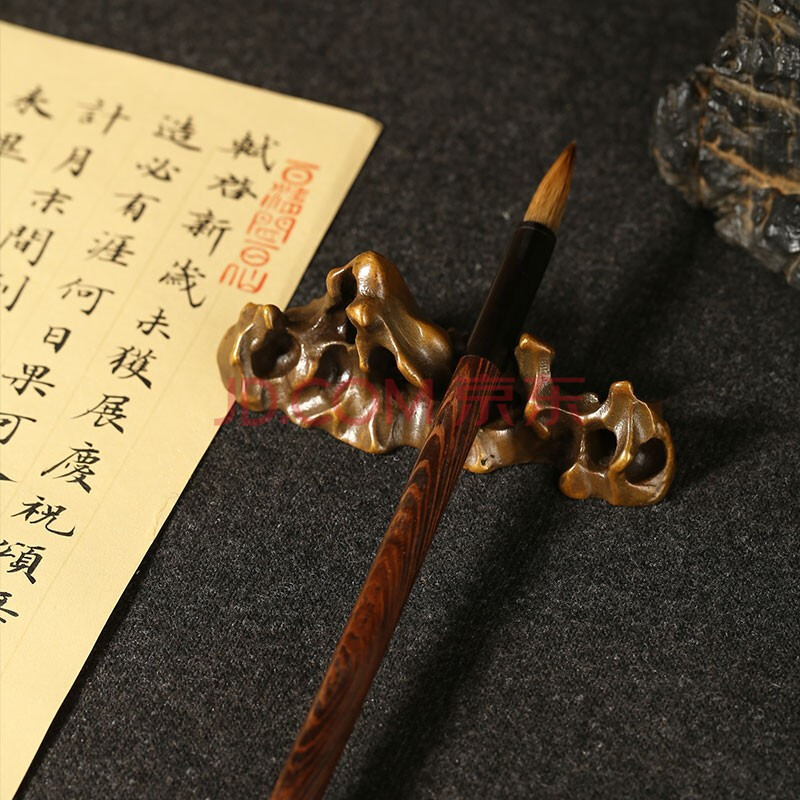 軾啓新歲未獲展慶祝頌
造必有涯何日果可
計月末間到
未
JD.COM 京东